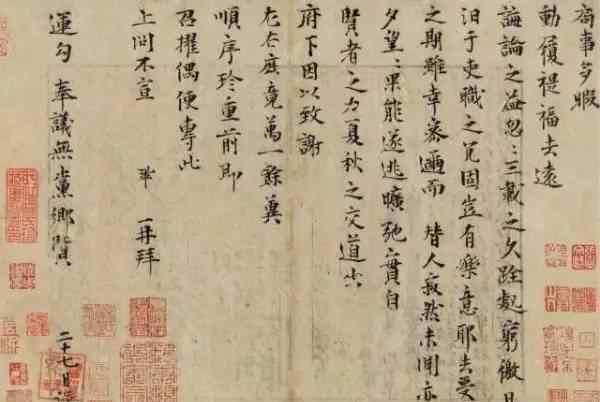 局事多暇
動履禔福去遠
誨論之益忽〻三載之久跧處窮徼日
汩于吏職之冗固豈有樂意耶去受
之期雖幸密邇而替人寂然未聞亦
夕望〻果能遂逃曠弛實自
賢者之力夏秋之交道出
府下因以致謝
左右庶竟萬一餘冀
順序珍重前即
召擢偶便專此
上問不宣 鞏再拜
運勾奉議無黨鄉賢 二十七日謹